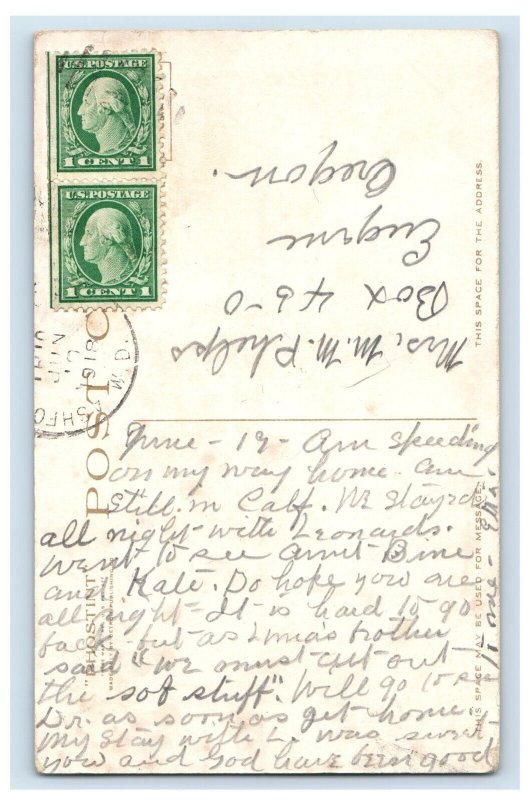 U.S. POSTAGE
1 CENT 1
U.S. POSTAGE
1 CENT 1
1918
POST C
"PHOSTINT"
THIS SPACE FOR THE ADDRESS.
THIS SPACE MAY BE USED FOR MESSAGE.
Mrs. M. M. Phelps
Box 450
Eugene
Oregon.
June - 19 - Am speeding
on my way home. Am
still in Calf. We stayed
all night with Leonards.
Went to see Aunt
and Kate. Do hope you are
all right - It is hard to go
back - but as brother
said "We must cut out
the sob stuff". Will go to see
Dr. as soon as get home.
My stay with L. was sweet
you and God have been good